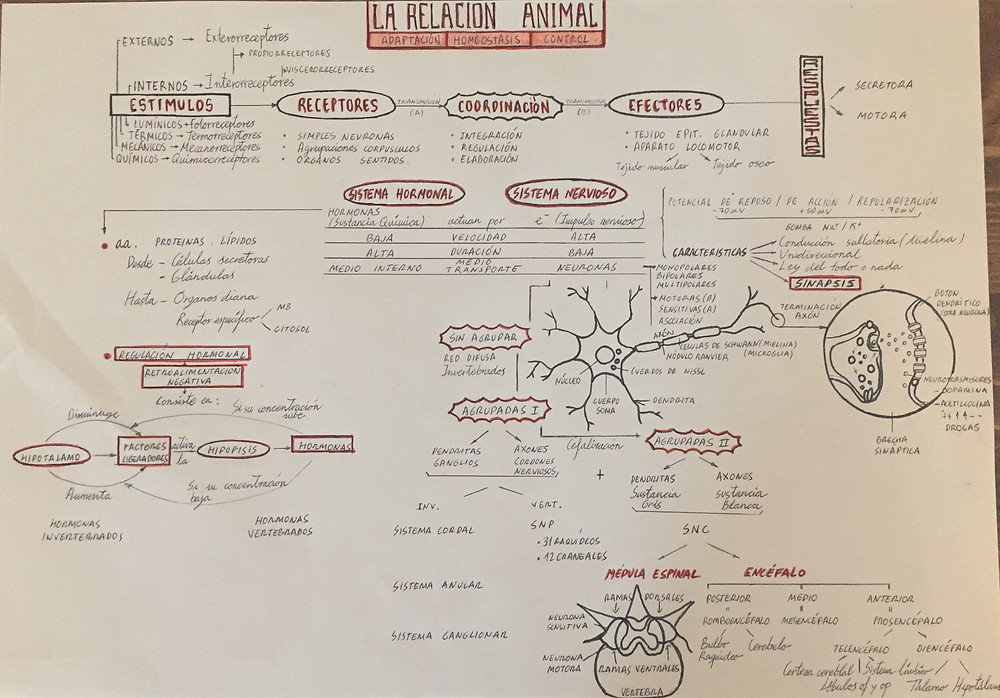 LA RELACION ANIMAL
ADAPTACIÓN HOMEOSTÁSIS CONTROL
EXTERNOS → Exterorreceptores
PROPIORRECEPTORES
VISCERORRECEPTORES
INTERNOS → Interorreceptores
ESTÍMULOS
RECEPTORES
TRANSMISIÓN
(A)
COORDINACIÓN
TRANSMISIÓN
(B)
EFECTORES
RESPUESTAS
SECRETORA
MOTORA
LUMÍNICOS → Fotorreceptores
TÉRMICOS → Termorreceptores
MECÁNICOS → Mecanorreceptores
QUÍMICOS → Quimiorreceptores
• SIMPLES NEURONAS
• Agrupaciones CORPUSCULOS
• ÓRGANOS SENTIDOS.
• INTEGRACIÓN
• REGULACIÓN
• ELABORACIÓN
• TEJIDO EPIT. GLANDULAR
• APARATO LOCOMOTOR
Tejido muscular
Tejido oseo
SISTEMA HORMONAL
SISTEMA NERVIOSO
HORMONAS
(Sustancia Química) actuan por e- (Impulso nervioso)
BAJA VELOCIDAD ALTA
ALTA DURACIÓN BAJA
MEDIO INTERNO MEDIO TRANSPORTE NEURONAS
CARACTERÍSTICAS
POTENCIAL DE REPOSO / DE ACCIÓN / REPOLARIZACIÓN
-70mV +50mV -70mV
BOMBA Na+/K+
Conducción saltatoria (Mielina)
Unidireccional
Ley del todo o nada
SINAPSIS
• a.a. PROTEINAS. LÍPIDOS
Desde - Células secretoras
- Glándulas
Hasta - Organos diana
Receptor específico
MB
CITOSOL
• REGULACIÓN HORMONAL
RETROALIMENTACION
NEGATIVA
Consiste en:
Disminuye
Si su concentración
sube
HIPOTALAMO
FACTORES
LIBERADORES
activa
la
HIPOFISIS
HORMONAS
Aumenta
Si su concentración
baja
HORMONAS
INVERTEBRADOS
HORMONAS
VERTEBRADOS
MONOPOLARES
BIPOLARES
MULTIPOLARES
MOTORAS (B)
SENSITIVAS (A)
ASOCIACIÓN
AXÓN
CÉLULAS DE SCHWANN (MIELINA)
NÓDULO RANVIER (MICROGLIA)
CUERPOS DE NISSL
NÚCLEO
CUERPO
SOMA
DENDRITA
TERMINACIÓN
AXÓN
BOTON
DENDRÍTICO
(OTRA NEURONA)
NEUROTRASMISORES
- DOPAMINA
- ACETILCOLINA
DROGAS
BRECHA
SINÁPTICA
SIN AGRUPAR
RED DIFUSA
Invertebrados
AGRUPADAS I
Cefalización
AGRUPADAS II
DENDRITAS
GANGLIOS
AXONES
CORDONES
NERVIOSOS
+
DENDRITAS
Sustancia
Gris
AXONES
sustancia
Blanca
INV.
VERT.
SISTEMA CORDAL
SNP
• 31 RAQUÍDEOS
• 12 CRANEALES
SISTEMA ANULAR
SISTEMA GANGLIONAR
SNC
MÉDULA ESPINAL
ENCÉFALO
RAMAS DORSALES
NEURONA
SENSITIVA
NEURONA
MOTORA
RAMAS VENTRALES
VERTEBRA
POSTERIOR MEDIO ANTERIOR
ROMBOENCÉFALO MESENCÉFALO PROSENCÉFALO
Bulbo
Raquídeo
Cerebelo
TELENCÉFALO
DIENCÉFALO
Corteza cerebral
Sistema Límbico
Lóbulos olf y op
Tálamo
Hipotálamo